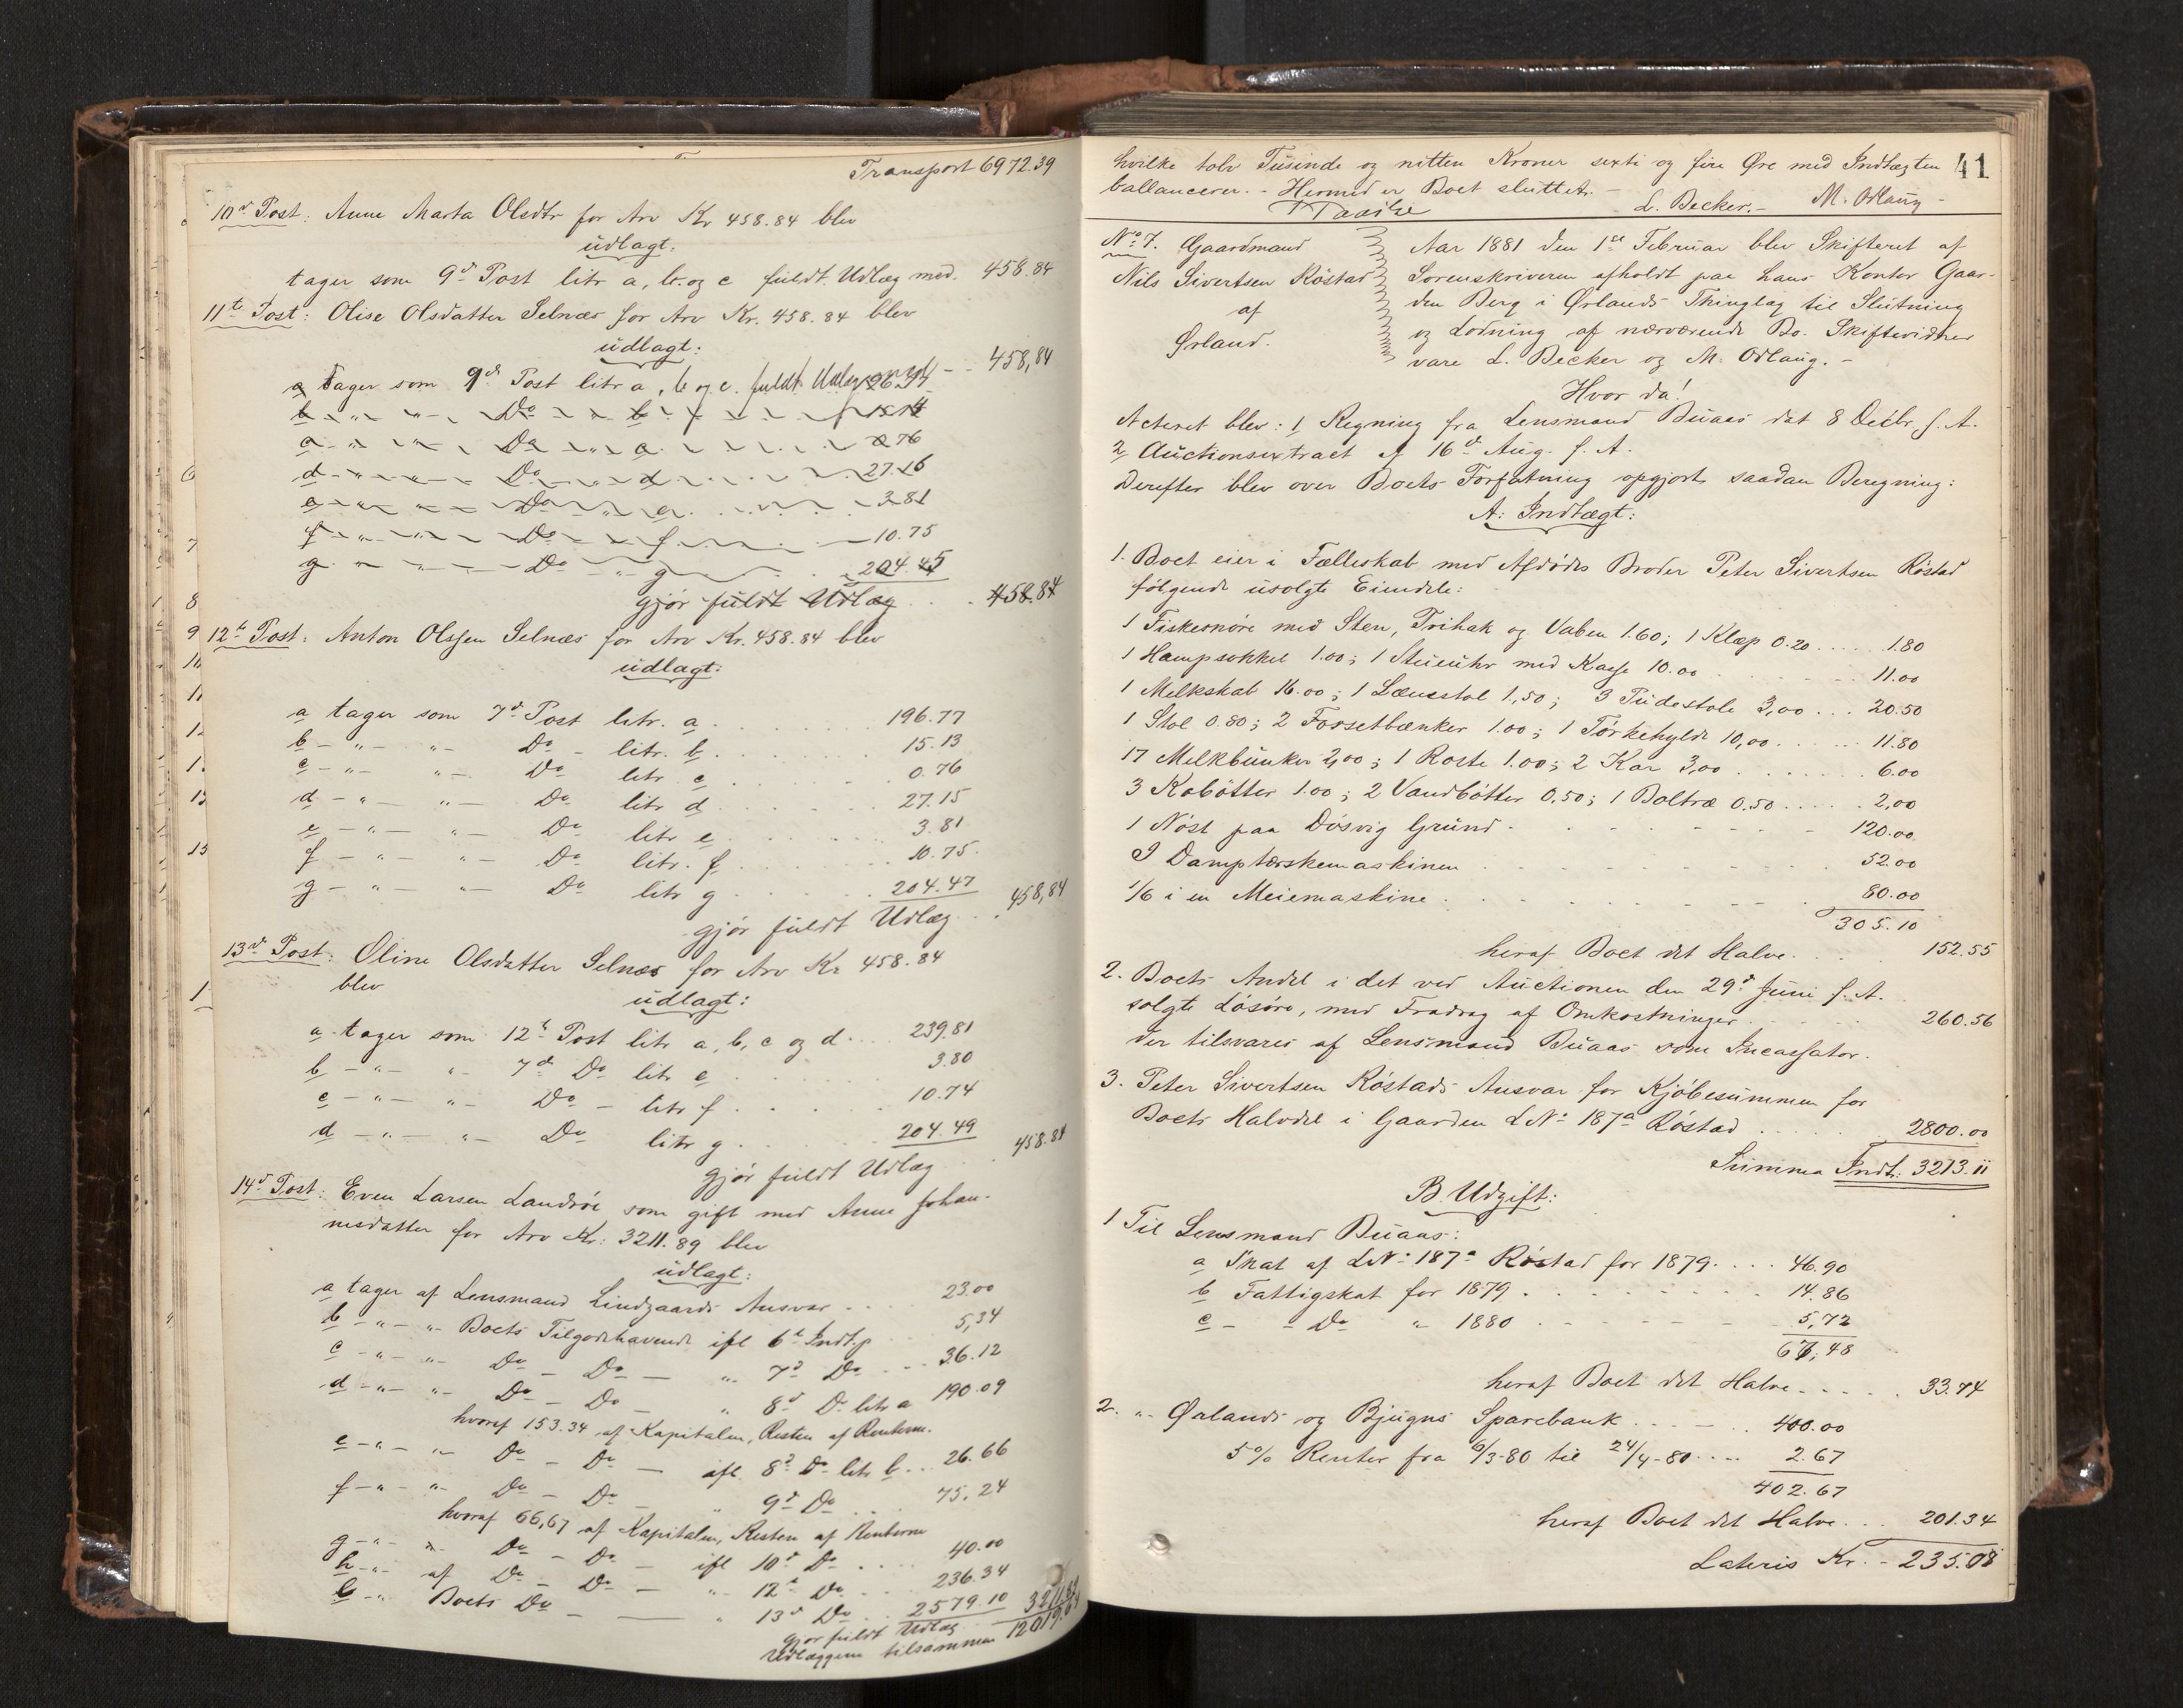 Transport 6972.39
10d Post: Anne Marta Olsdtr for Arv Kr 458.84 blev
udlagt:
tager som 9d Post litr a, b. og c fuldt Udlæg med. 458.84
11te Post: Olise Olsdatter Selnæs for Arv Kr. 458.84 blev
udlagt:
a Tager som 9d Post litr a, b og c. fuldt Udlæg med - - 458,84
b - " - " - Do b 15.14
c - " - " - Do c. 0.76
d - " - " - Do d 27.16
e - " - " - Do e. 3.81
f - " - " - Do f 10.75
g - " - " - Do " g 204.45
gjør fuldt Udlæg . . . 458.84
12te Post: Anton Olssen Selnæs for Arv Kr. 458.84 blev
udlagt:
a tager som 7d Post litr. a . 196.77
b - " - " - Do - litr. b . 15.13
c - " - " - Do litr c . 0.76
d - " - " - Do litr d . 27.15
e - " - " - Do litr e . 3.81
f - " - " - Do litr. f . 10.75.
g - " - " - Do litr g . 204.47
gjør fuldt Udlæg . . 458,84
13d Post: Oline Olsdatter Selnæs for Arv Kr 458.84
blev
udlagt:
a. tager som 12te Post litr a, b, c og d . . . 239.81
b - " - " - 7d Do litr e . 3.80
c - " - " - Do - litr f . 10.74
d - " - " - Do litr g . 204.49
gjør fuldt Udlæg . . 458.84
14d Post: Even Larsen Landrøe som gift med Anne Johan-
nesdatter for Arv Kr: 3211.89 blev
udlagt:
a tager af Lensmand Lindgaards Ansvar . . . . 23.00
b - " - " - Boets Tilgodehavende ifl 6te Indtg . . 5,34
c - " - " - Do - Do - " - 7d Do . - - 36.12
d - " - " - Do - Do - " 8d Do litr a 190.09
hvoraf 153.34 af Kapitalen, Resten af Renterne.
e - " - " - Do - Do - ifl. 8d Do litr b . . 26.66
f - " - " - Do - Do - " 9d Do . . 75.24
hvoraf 66,67 af Kapitalen, Resten af Renterne
g - " - " - Do - Do - ifl 10d Do . . . . 40.00
h - " - af Do - Do - " 12te Do . . 236.34
Boets Do - " 13d Do . . 2579.10 3211.89
gjør fuldt Udlæg
Udlæggene tilsammen 12019.64
41
hvilke tolv Tusinde og nitten Kroner sexti og fire Øre med Indtægten
ballancerer. - Hermed er Boet sluttet. -
L. Becker. - M. Odlaug -
No 7. Gaardmand
Nils Sivertsen Röstad
af
Ørland.
Aar 1881 den 1ste Februar blev Skifteret af
Sorenskriveren afholdt paa hans Kontor Gaar-
den Berg i Ørlands Thinglag til Slutning
og Lodning af nærværende Bo. Skiftevidner
vare L. Becker og M. Odlaug. -
Hvor da!
Acteret blev: 1 Regning fra Lensmand Buaas dat 8 Decbr. f. A.
2 Auctionsextract af 16d Aug. f. A.
Derefter blev over Boets Forfatning opgjort saadan Beregning:
A: Indtægt:
1. Boet eier i Fælleskab med Afdödes Broder Peter Sivertsen Röstad
følgende usolgte Eiendele:
1 Fiskesnöre med Sten, Trihak og Vaben 1.60; 1 Klæp 0.20 . . . . 1.80
1 Hampsokkel 1.00; 1 Stueuhr med Kasse 10.00 . . . . 11.00
1 Melkskab 16.00; 1 Lænestol 1,50; 3 Pudestole 3,00 . . . 20.50
1 Stol 0.80; 2 Forsetbænker 1.00; 1 Törkehylde 10,00 . . . . 11.80
17 Melkbunker 2,00; 1 Roste 1.00; 2 Kar 3,00 . . . . 6.00
3 Kobötter 1.00; 2 Vandbötter 0.50; 1 Boltræ 0.50 . . . . . 2,00
1 Nöst paa Dösvig Grund . . . . 120.00
I Damptærskemaskinen . . . . 52.00
1/6 i en Meiemaskine . . . . 80.00
305.10
heraf Boet det Halve . . . . 152.55
2. Boets Andel i det ved Auctionen den 29d Juni f. A.
solgte Lösöre, med Fradrag af Omkostninger . . . 260.56
der tilsvares af Lensmand Buaas som Incassator.
3. Peter Sivertsen Röstads Ansvar for Kjöbesummen for
Boets Halvdel i Gaarden L No 187a Röstad . . . . 2800.00
Summa Indt: 3213.11
B. Udgift:
1 Til Lensmand Buaas:
a Skat af LNo 187a Röstad for 1879 . . . . 46.90
b Fattigskat for 1879 . . . . 14.86
c - - Do " 1880 - - - - 5,72
67,48
heraf Boet det Halve . . . . . 33.74
2. " Ørlands og Bjugns Sparebank . . . . 400.00
5% Renter fra 6/3-80 til 24/4-80 . . . . 2.67
402.67
heraf Boet det Halve . . . 201.34
Lateris Kr. - 235.08